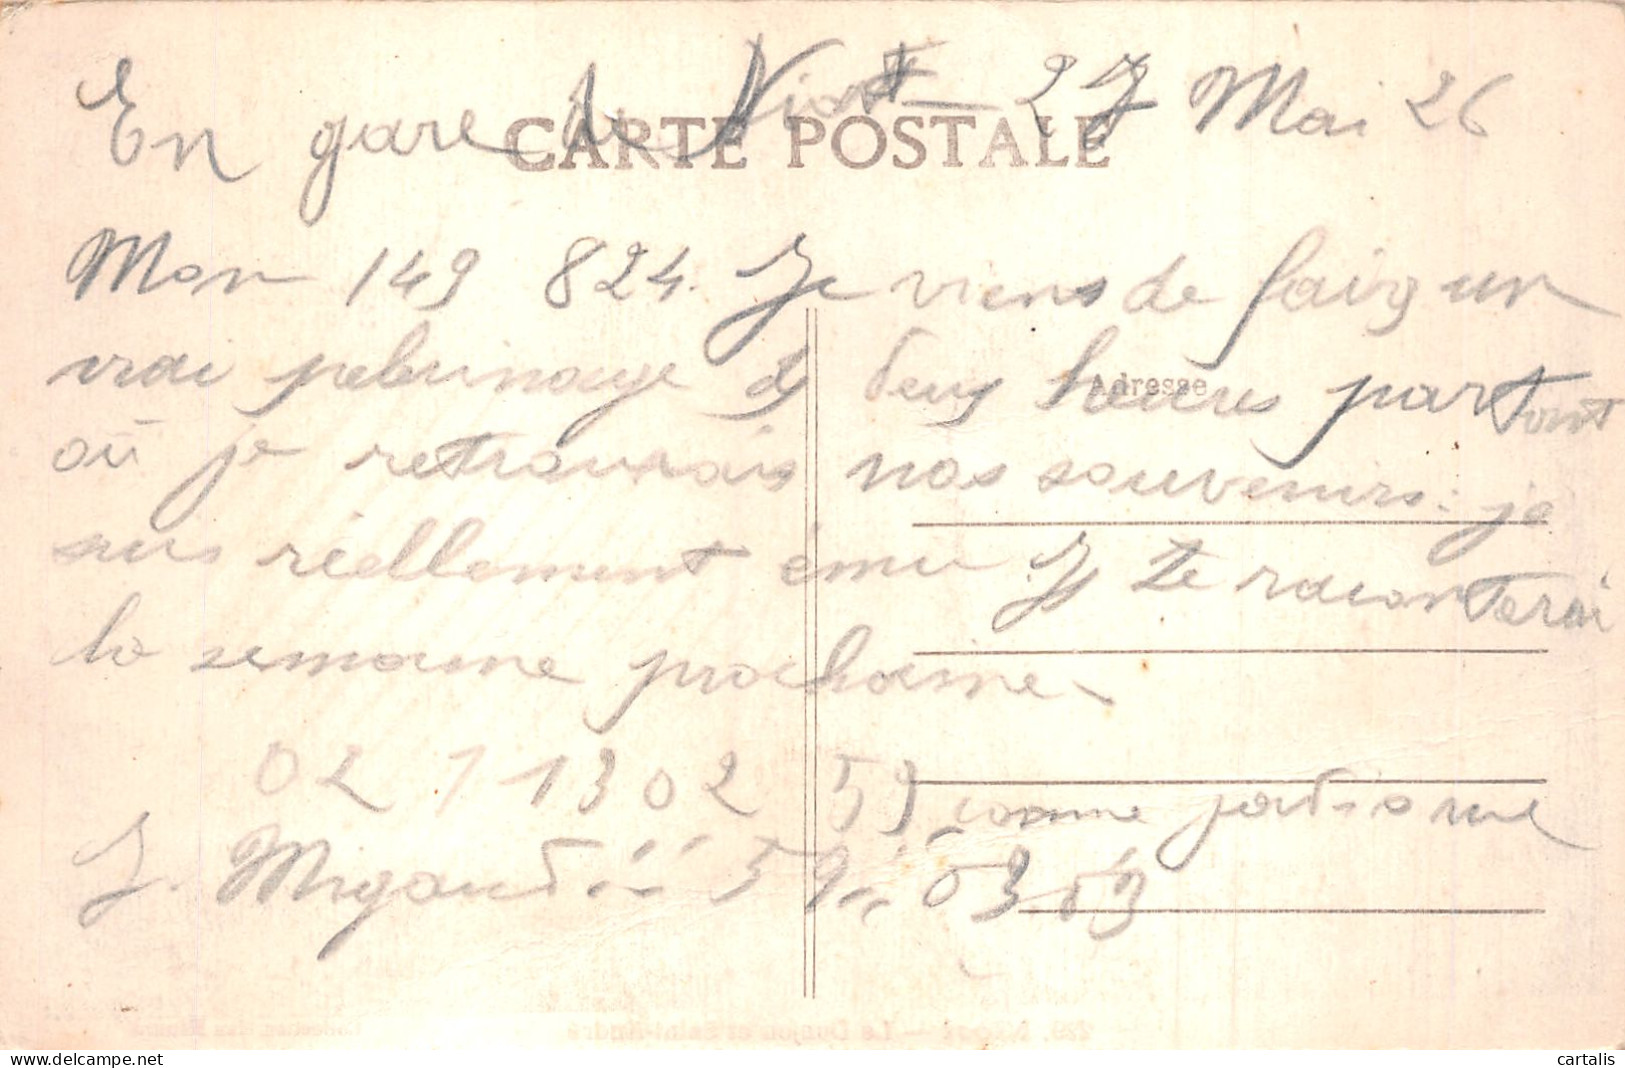 En gare de Niort 27 Mai 26
CARTE POSTALE
Mon 149 824. Je viens de faire un
vrai pelerinage de deux heures partout
Adresse
où je retrouvais nos souvenirs : je
suis réellement ému Je te raconterai
la semaine prochaine
02 7 1302 59 comme jadis une
J. Migaud
cartalis